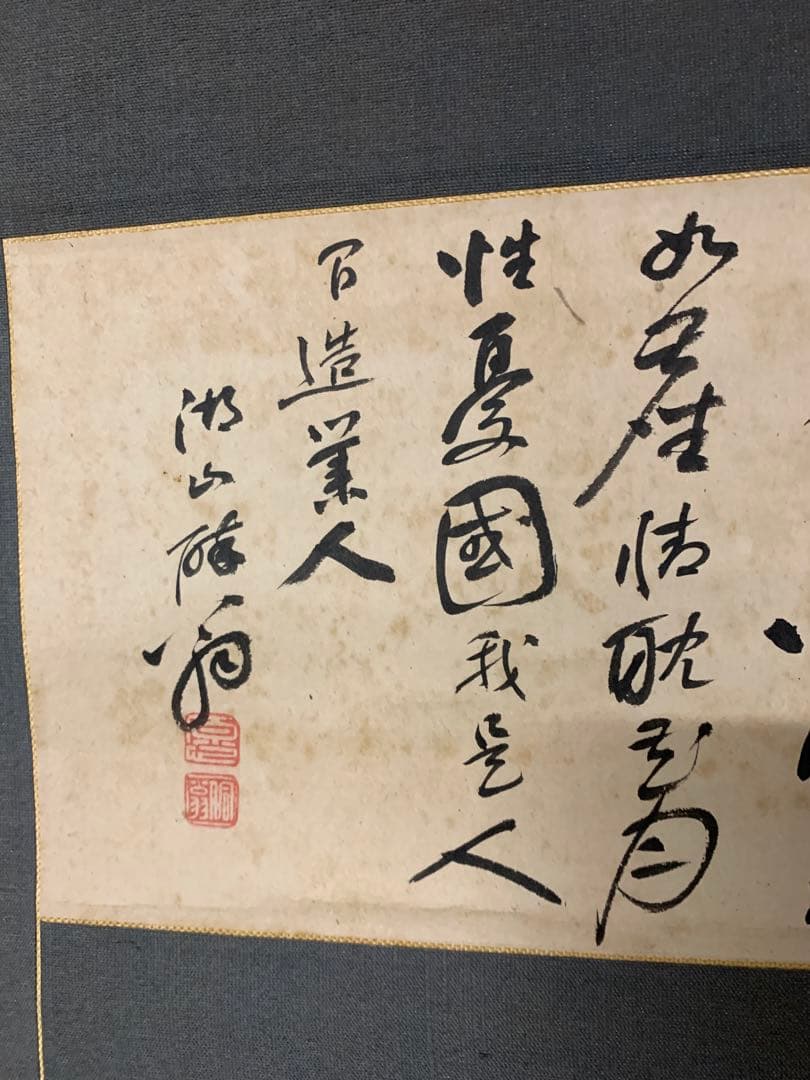 如産情耽花月
性憂國我是人
間造業人
湖山酔翁